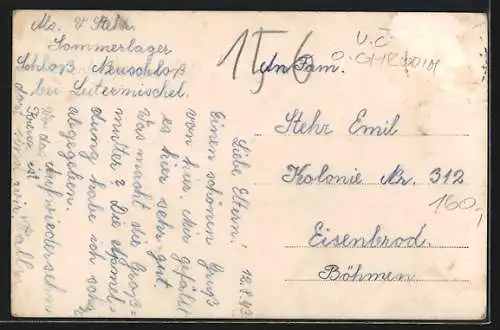 Als. V Stehr.
Sommerlager
Schloß Neuschloß
bei Leitermischel.
12.8.43
Liebe Eltern!
Einen schönen Gruß
von hier. Mir gefällt
es hier sehr gut.
Was macht die Groß=
mutter? Die Abmel-
dung habe ich schon
abgegeben.
Auf wiedersehn
156
An Fam.
Stehr Emil
Kolonie Nr. 312
Eisenbrod.
Böhmen.
160,-